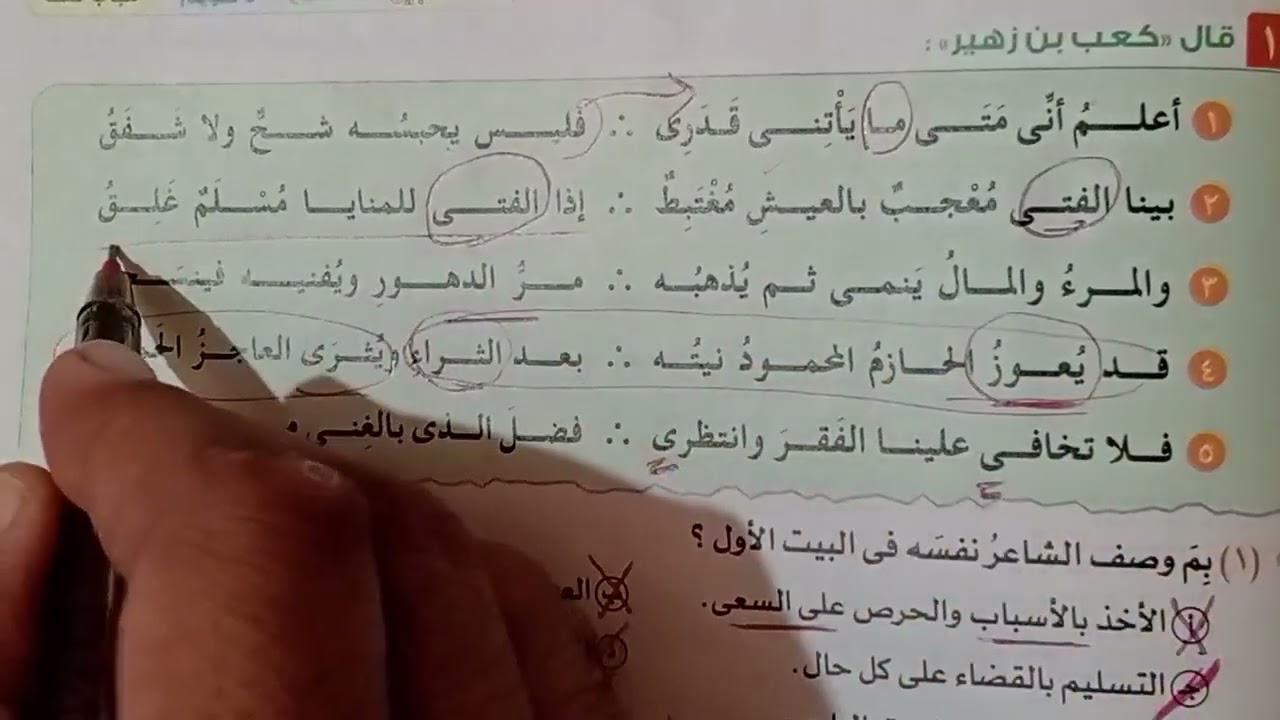 ١ قال «كعب بن زهير»:
١ أعلـمُ أنِّى مَتَـى ما يَأْتِنى قَدَرِى ∴ فليس يحبسُه شحٌّ ولا شَفَقُ
٢ بينا الفتى مُعْجبٌ بالعيشِ مُغْتَبِطٌ ∴ إذا الفتى للمنايا مُسْلَمٌ غَلِقُ
٣ والمرءُ والمالُ يَنمى ثم يُذهبُه ∴ مرُّ الدهورِ ويُفنيه
٤ قد يُعوزُ الحازمُ المحمودُ نيتُه ∴ بعد الثراءِ ويُثرَى العاجزُ
٥ فلا تخافى علينا الفَقرَ وانتظرى ∴ فضلَ الذى بالغِنى
(١) بِمَ وصف الشاعرُ نفسَه فى البيت الأول ؟
أ الأخذ بالأسباب والحرص على السعى.
جـ التسليم بالقضاء على كل حال.